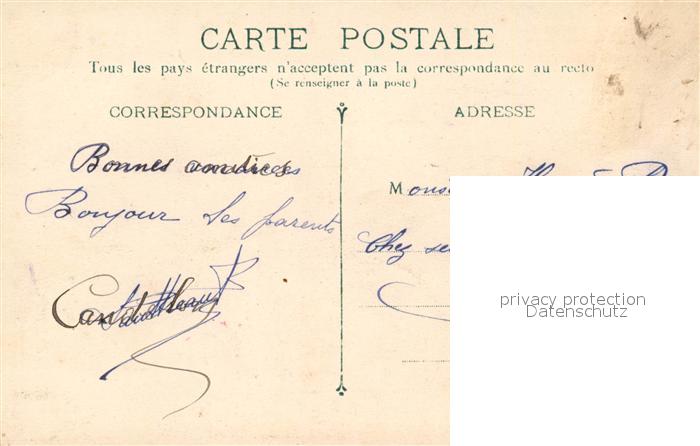 CARTE POSTALE
Tous les pays étrangers n'acceptent pas la correspondance au recto
(Se renseigner à la poste)
CORRESPONDANCE
ADRESSE
Bonnes
Bonjour Ses parents
Mons
Chez se
privacy protection
Datenschutz